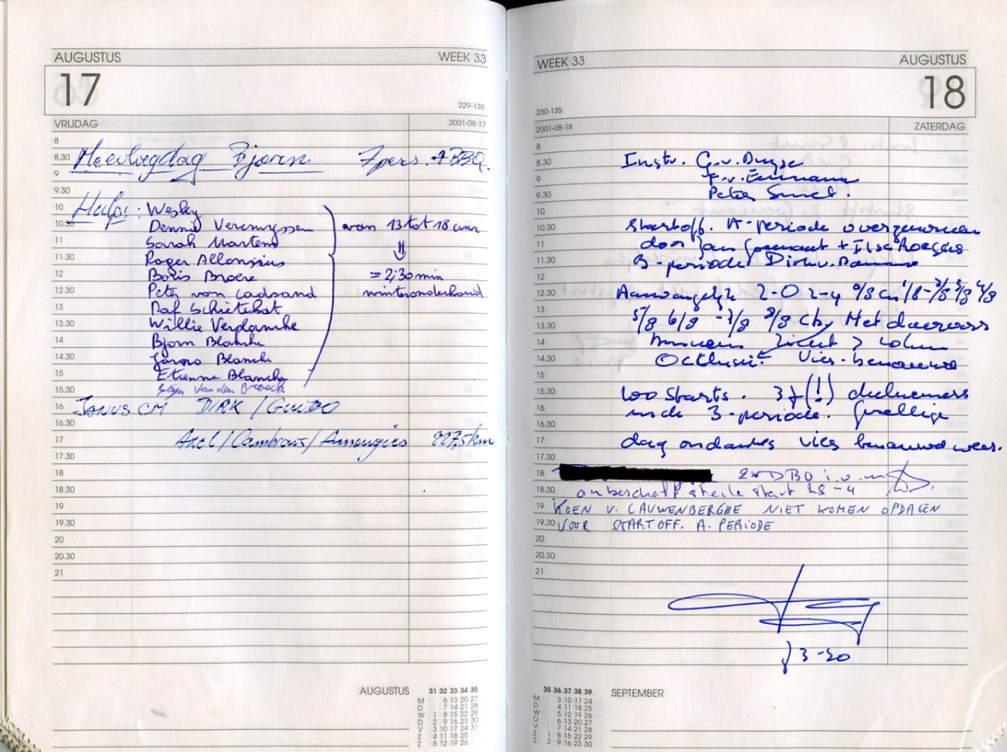 AUGUSTUS WEEK 33
17
229-136
VRIJDAG 2001-08-17
8
8.30 Meerlegdag Bjorn 7 pers. + BBQ.
9
9.30
10 Hulp: Wesley
10.30 Dennis Vereruyssen van 13 tot 18 uur
11 Sarah Martens
11.30 Roger Allonsius
12 Boris Broere = 2,30 min
12.30 Peter van Cadsand winteronderhoud
13 Raf Schietekat
13.30 Willie Verplancke
14 Bjorn Blanche
14.30 Blanche
15 Etienne Blanche
15.30 Stijn van den Broeck
16 JANUS CM DIRK / GUIDO
16.30
17 Axel / Cambrai / 227,5 km
17.30
18
18.30
19
19.30
20
20.30
21
AUGUSTUS 31 32 33 34 35
M 6 13 20 27
D 7 14 21 28
W 1 8 15 22 29
D 2 9 16 23 30
V 3 10 17 24 31
Z 4 11 18 25
Z 5 12 19 26
WEEK 33 AUGUSTUS
18
230-135
2001-08-18 ZATERDAG
8
8.30 Instr. G. v. Duyse
9 F. v.
9.30 Peter Smet.
10
10.30 Startoff. A-periode overgenomen
11 door Jan + Ilse Roegies
11.30 B-periode Dirk v.
12
12.30 Aanvangelijk 2-0 2-4 0/8 1/8-2/8 3/8 4/8
13 5/8 6/8 -7/8 8/8 Cby Met daarvoor
13.30
14
14.30 Occlusie. Vies-benauwd
15
15.30 100 starts. 37 (!) deelnemers
16 in de B-periode. Gezellige
16.30
17 dag ondanks vies benauwd weer.
17.30
18 2x DBO i.o.m.
18.30 onbeschoft steile start LS-4
19 KOEN V. CAUWENBERGHE NIET KOMEN OPDAGEN
19.30 VOOR STARTOFF. A. PERIODE
20
20.30
21
3-20
35 36 37 38 39 SEPTEMBER
M 3 10 17 24
D 4 11 18 25
W 5 12 19 26
D 6 13 20 27
V 7 14 21 28
Z 1 8 15 22 29
Z 2 9 16 23 30